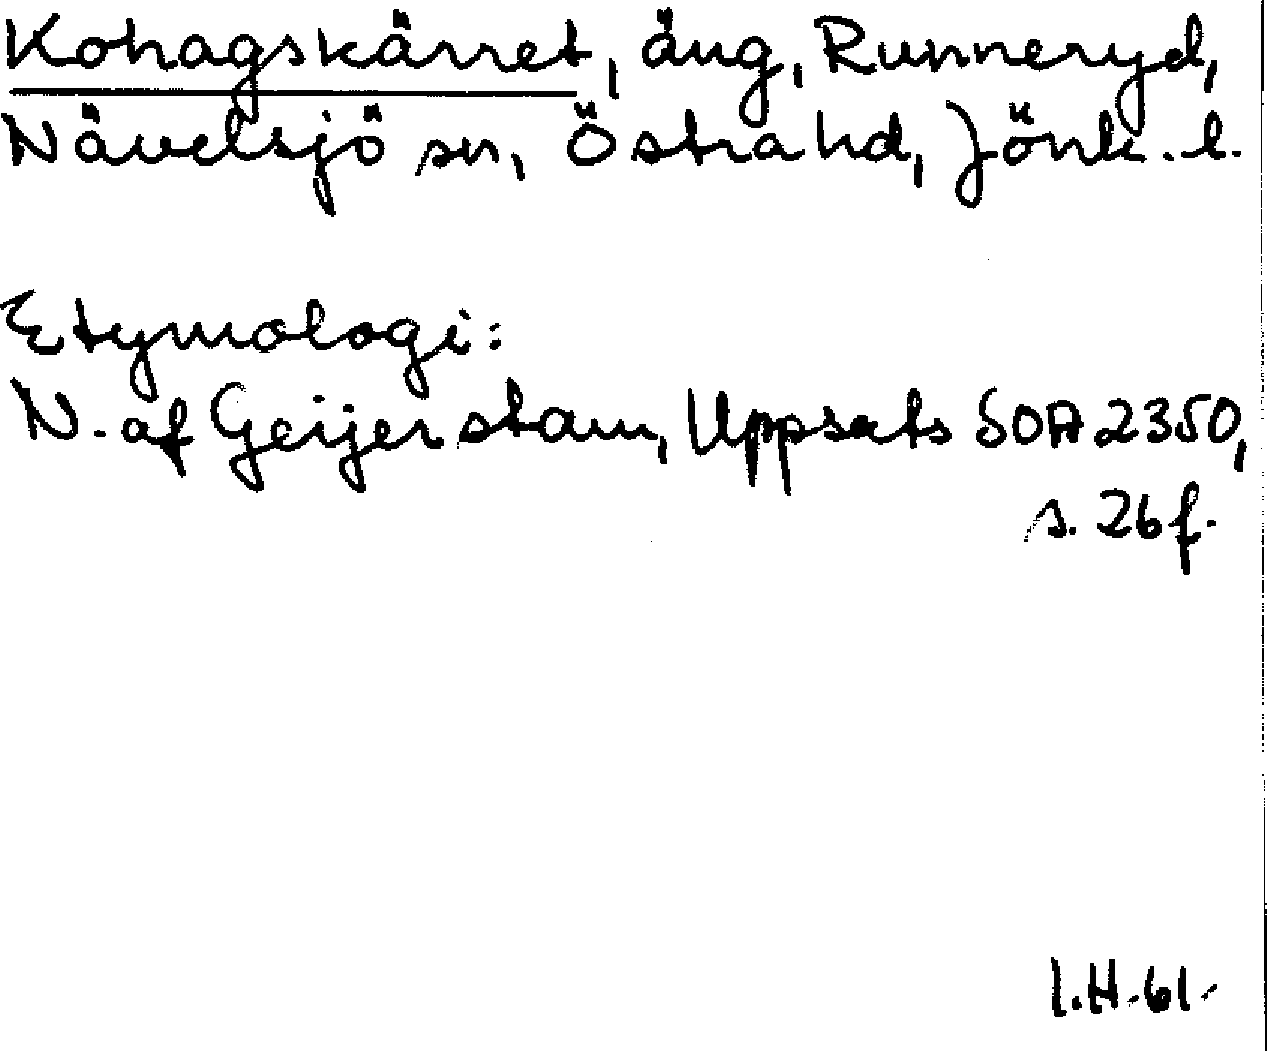 Kohagskärret, äng, Runneryd,
Nävelsjö sn, Östra hd, Jönk. l.
Etymologi:
N. af Geijerstam, Uppsats SOA 2350,
s. 26 f.
I.H. 61.